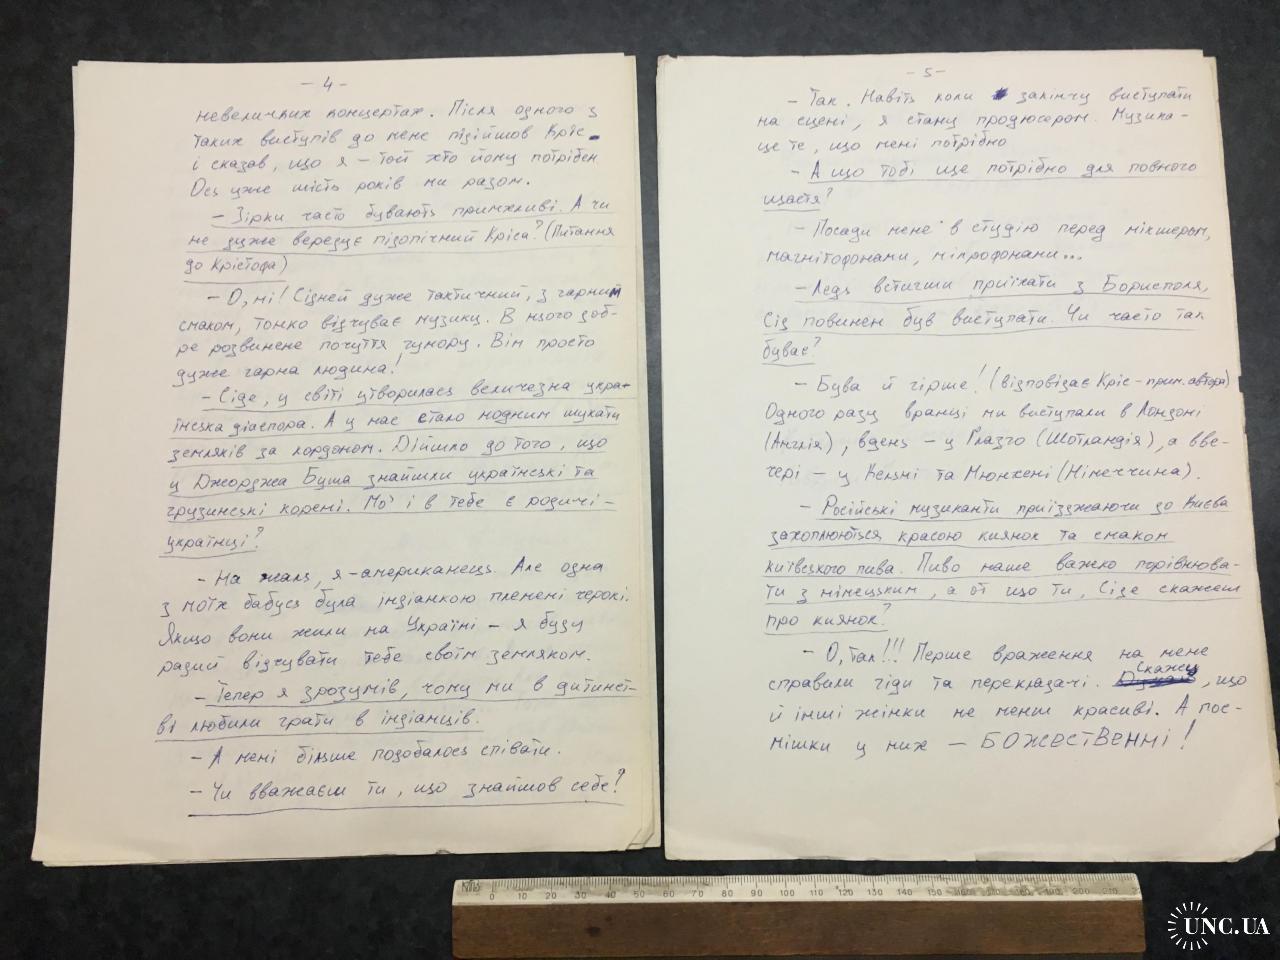 - 4 -
невеличких концертах. Після одного з
таких виступів до мене підійшов Кріс
і сказав, що я – той хто йому потрібен
Ось уже шість років ми разом.
– Зірки часто бувають примхливі. А чи
не дуже вередує підопічний Кріса? (Питання
до Крістофа)
– О, ні! Сідней дуже тактичний, з гарним
смаком, тонко відчуває музику. В нього доб-
ре розвинене почуття гумору. Він просто
дуже гарна людина!
– Сіде, у світі утворилась величезна укра-
їнська діаспора. А у нас стало модним шукати
земляків за кордоном. Дійшло до того, що
у Джорджа Буша знайшли українські та
грузинські корені. Мо' і в тебе є родичі –
українці?
– На жаль, я – американець. Але одна
з моїх бабусь була індіанкою племені черокі.
Якщо вони жили на Україні – я буду
радий відчувати тебе своїм земляком.
– Тепер я зрозумів, чому ми в дитинст-
ві любили грати в індіанців.
– А мені більше подобалось співати.
– Чи вважаєш ти, що знайшов себе?
- 5 -
– Так. Навіть коли закінчу виступати
на сцені, я стану продюсером. Музика –
це те, що мені потрібно
– А що тобі ще потрібно для повного
щастя?
– Посади мене в студію перед мікшером,
магнітофонами, мікрофонами...
– Ледь встигши приїхати з Борисполя,
Сід повинен був виступати. Чи часто так
буває?
– Бува й гірше! (відповідає Кріс – прим. автора)
Одного разу вранці ми виступали в Лондоні
(Англія), вдень – у Глазго (Шотландія), а вве-
чері – у Кельні та Мюнхені (Німеччина).
– Російські музиканти приїзджаючи до Києва
захоплюються красою киянок та смаком
київського пива. Пиво наше важко порівнюва-
ти з німецьким, а от що ти, Сіде скажеш
про киянок?
– О, так!!! Перше враження на мене
справили гіди та перекладачі. Скажу, що
й інші жінки не менш красиві. А пос-
мішки у них – БОЖЕСТВЕННІ!
0 10 20 30 40 50 60 70 80 90 100 110 120 130 140 150 160 170 180 190 200 210
UNC.UA